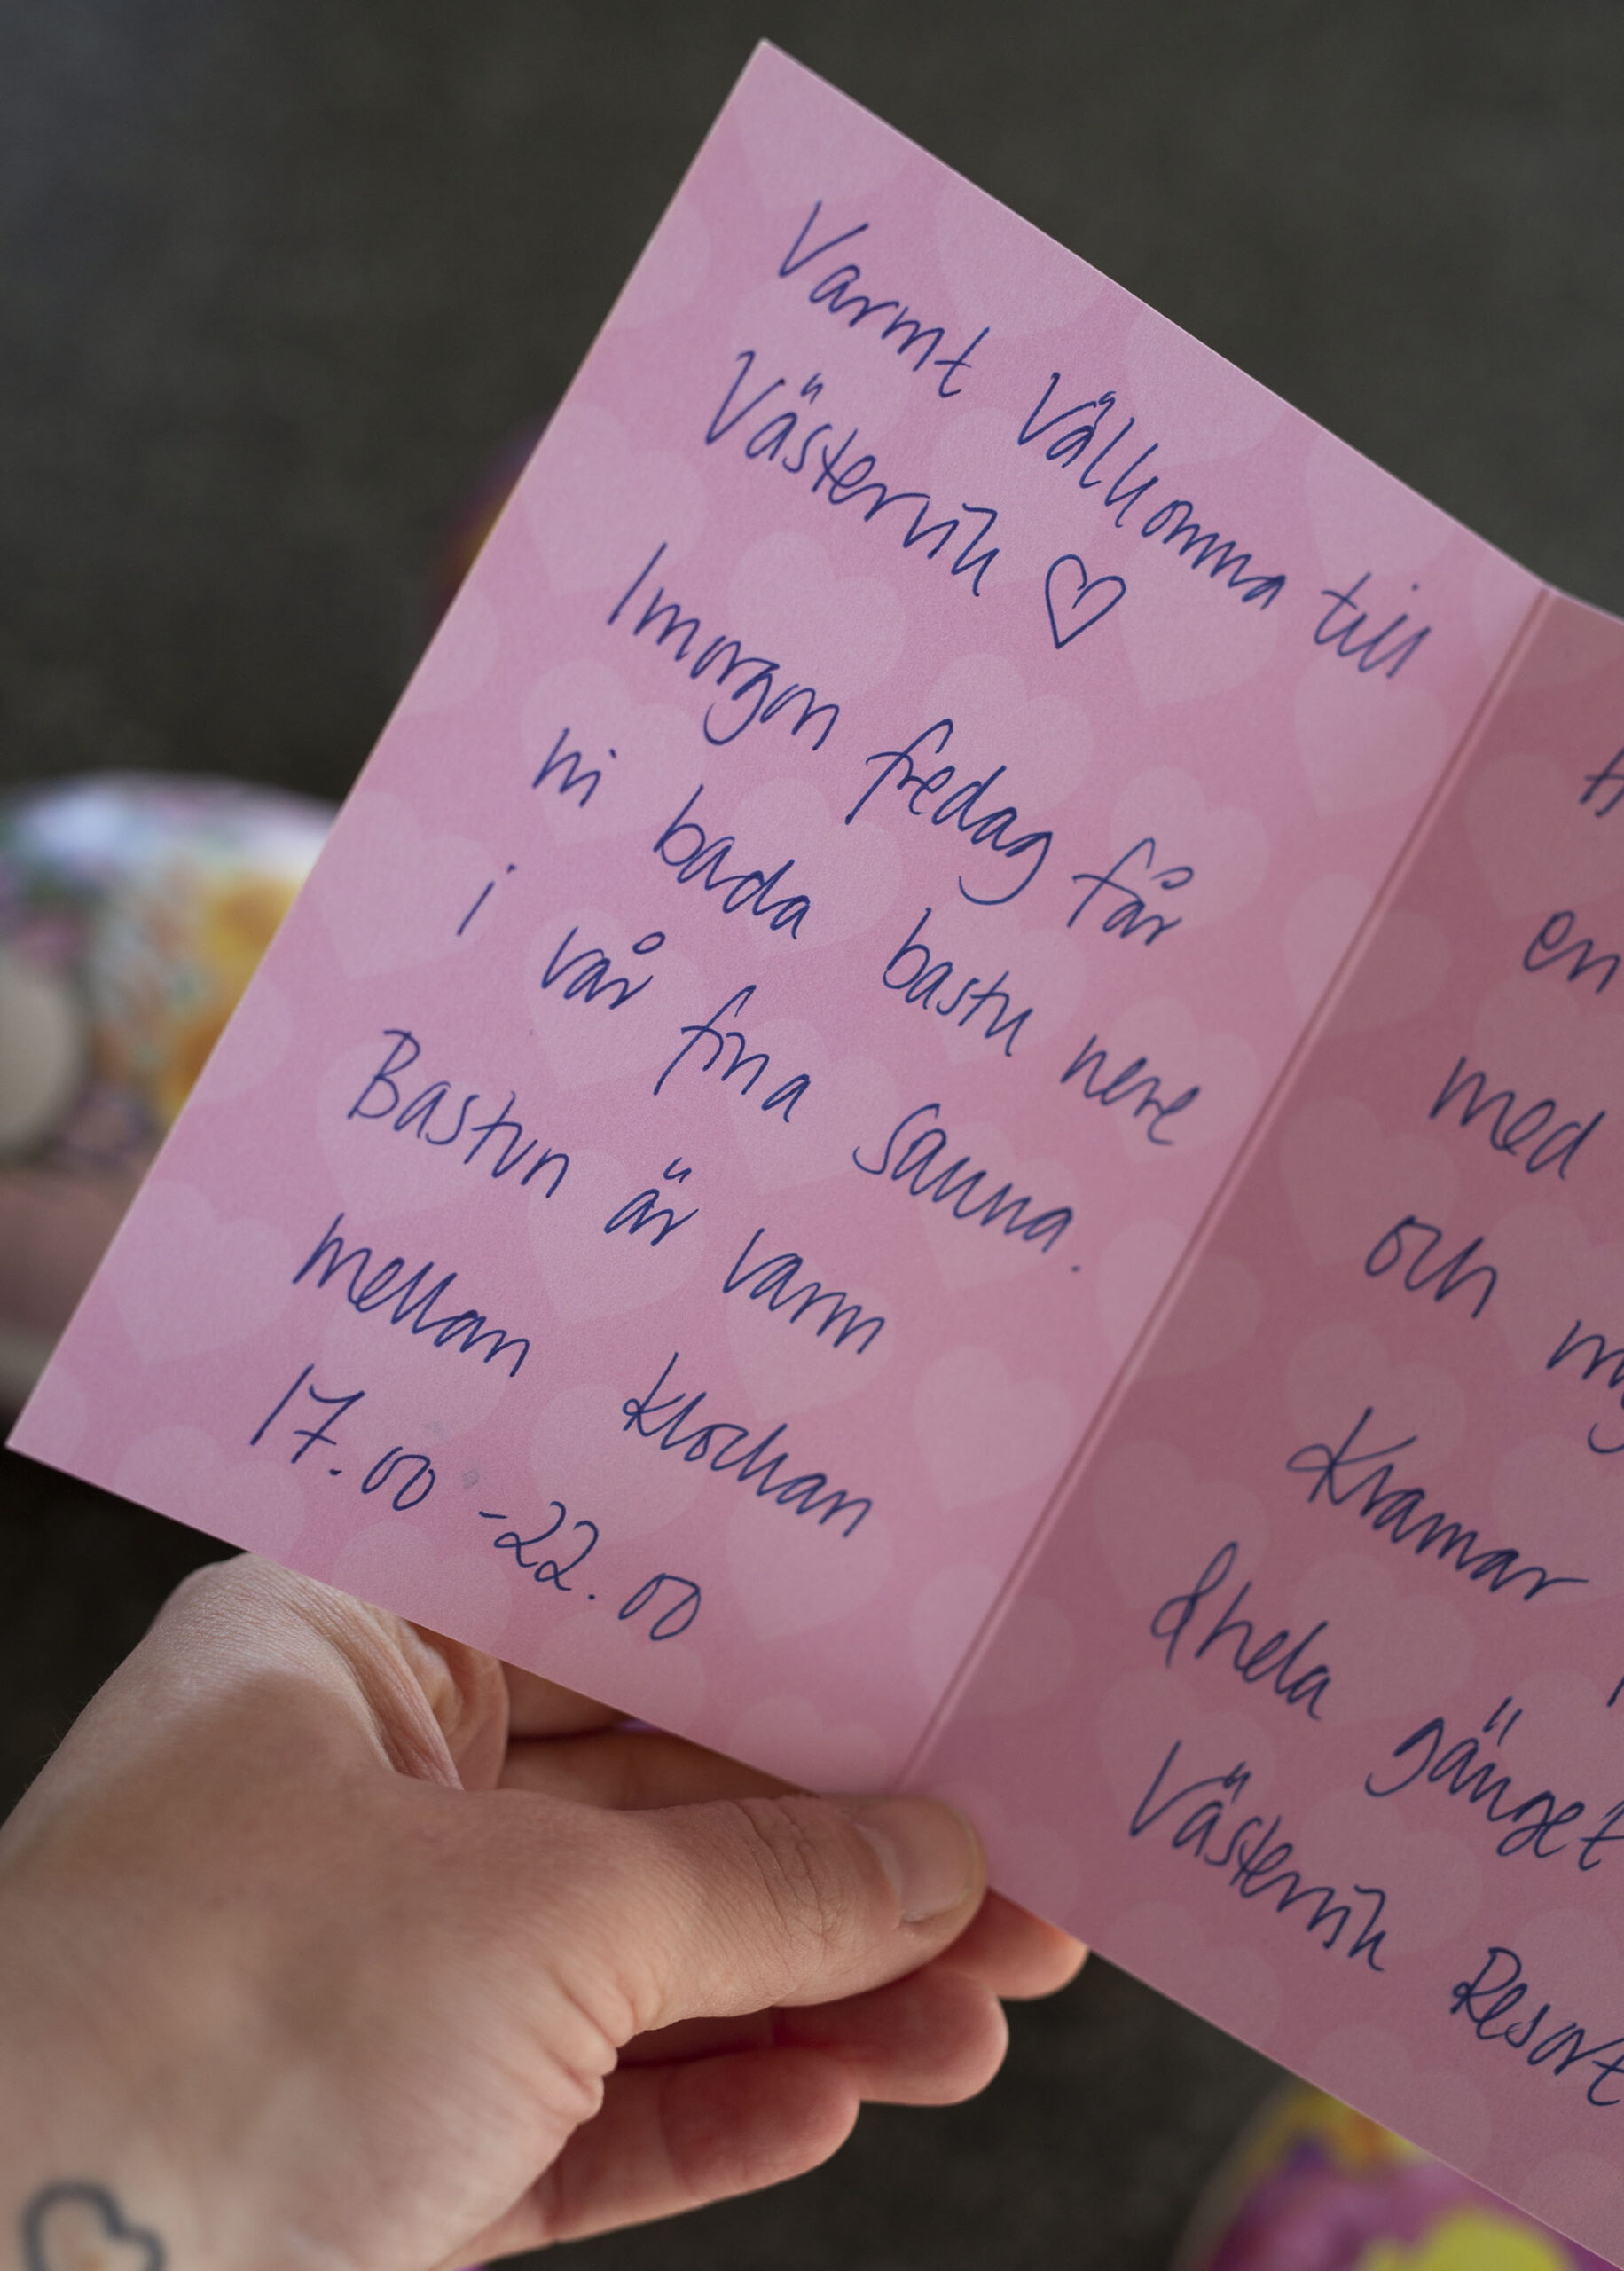 Varmt Välkomna till
Västervik ♡
Imorgon fredag får
ni bada bastu nere
i vår fina sauna.
Bastun är varm
mellan klockan
17.00-22.00
en
med
och
Kramar
& hela gänget
Västervik Resort